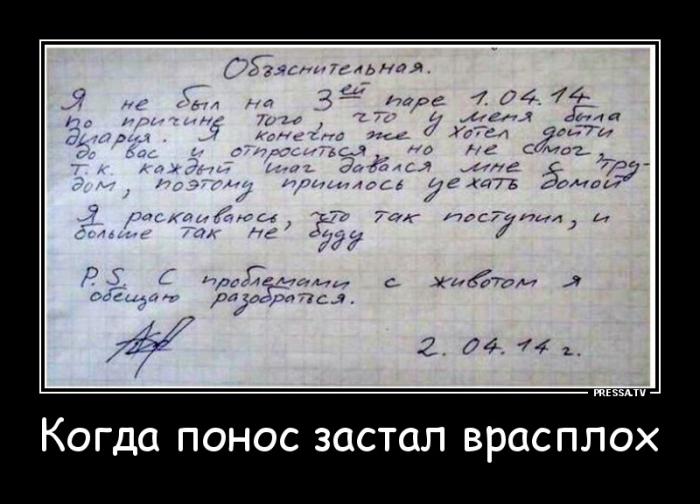 Объяснительная.
Я не был на 3ей паре 1.04.14
по причине того, что у меня была
диарея. Я конечно же хотел дойти
до вас и отпроситься, но не смог,
т.к. каждый шаг давался мне с тру-
дом, поэтому пришлось уехать домой
Я раскаиваюсь, что так поступил, и
больше так не буду
P.S. С проблемами с животом я
обещаю разобраться.
2.04.14 г.
PRESSA.TV
Когда понос застал врасплох